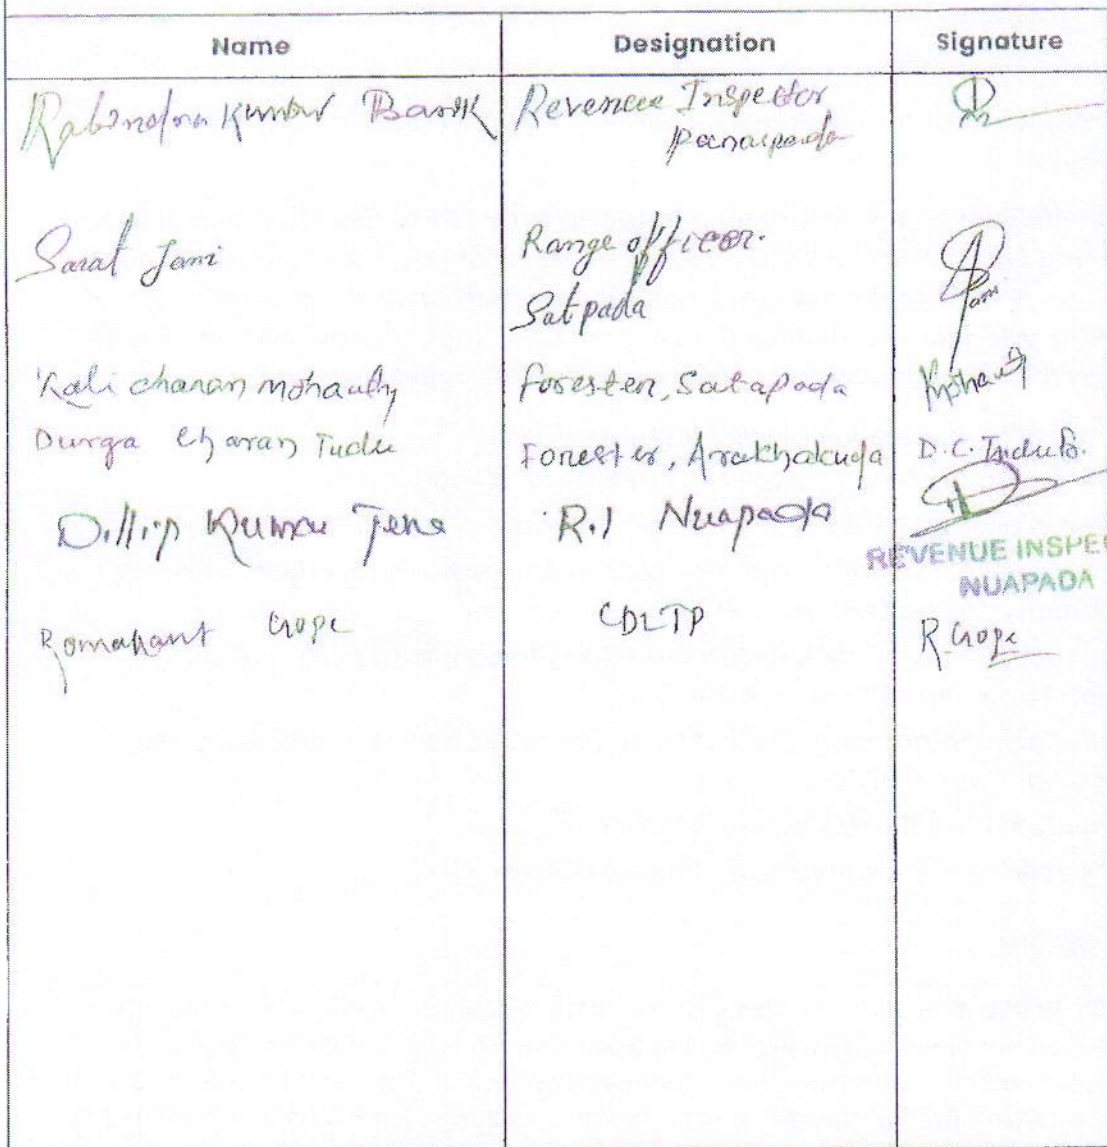 Name Designation Signature
Rabindra Kumar Barik Revenue Inspector
Panaspada
Sarat Jani Range officer.
Satpada
Jani
Kali charan mohanty forester, Satapada
Durga Charan Tudu Forester, Arakhakuda D.C. Tudu
Dillip Kumar Jena R.I Nuapada
REVENUE INSPE
NUAPADA
Ramakant Gope CDLTP R Gope